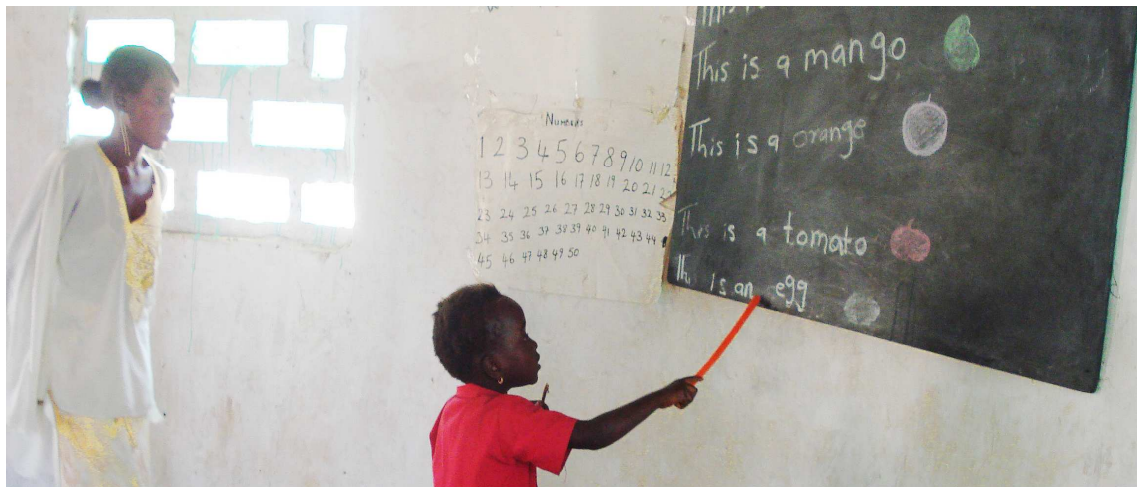 Numbers
1 2 3 4 5 6 7 8 9 10 11 12
13 14 15 16 17 18 19 20 21 22
23 24 25 26 27 28 29 30 31 32 33
34 35 36 37 38 39 40 41 42 43 44
45 46 47 48 49 50
This is
This is a mango
This is a orange
This is a tomato
This is an egg